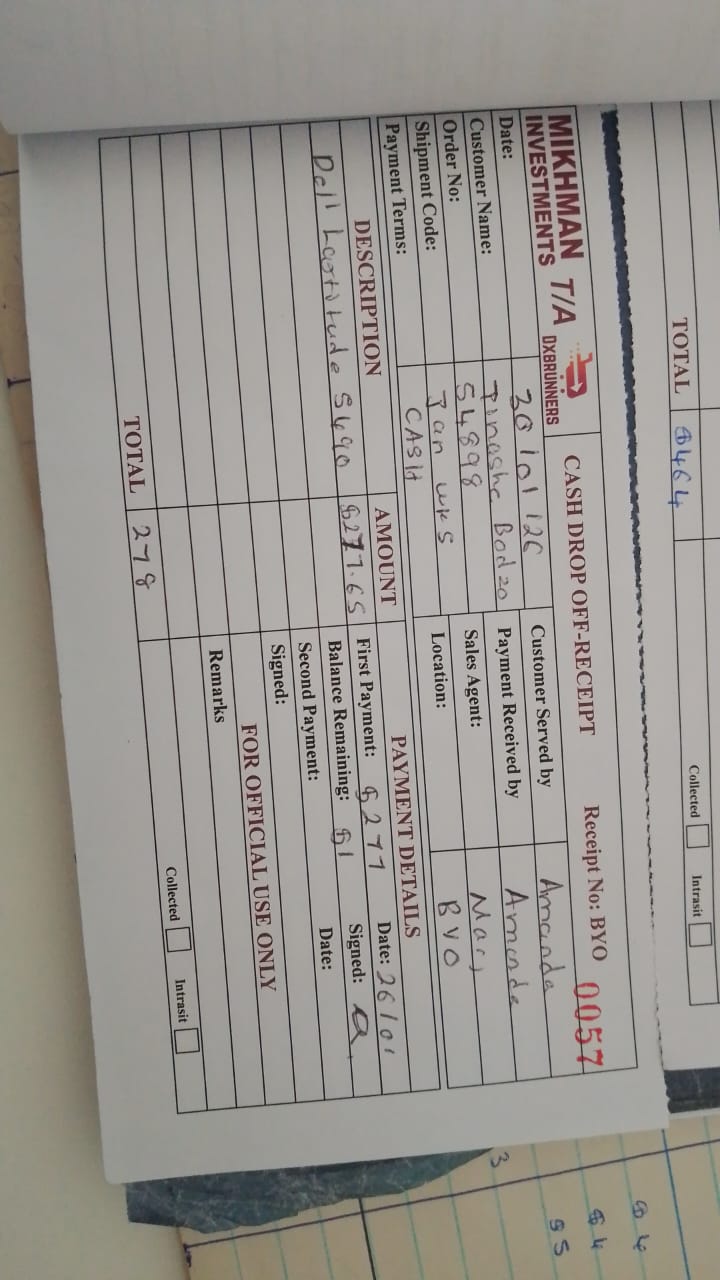 TOTAL $464
Collected Intrasit
MIKHMAN T/A DXBRUNNERS
INVESTMENTS
CASH DROP OFF-RECEIPT Receipt No: BYO 0057
Date: 30/01/26 Customer Served by Amanda
Customer Name: Tinashe Bodzo Payment Received by Amanda
Order No: 54898 Sales Agent:
Shipment Code: Jan wk5 Location: BYO
Payment Terms: CASH
DESCRIPTION AMOUNT PAYMENT DETAILS
Dell Lastitude 5490 $277.65 First Payment: $277 Date: 26/01
Balance Remaining: $1 Signed: a
Second Payment: Date:
Signed:
FOR OFFICIAL USE ONLY
Remarks
TOTAL 278
Collected Intrasit
3
$4
$4
95